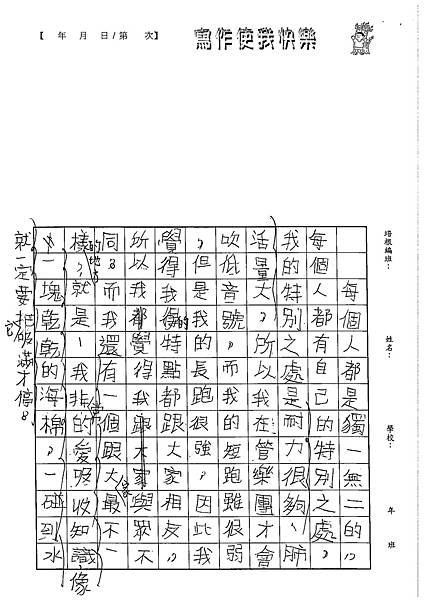 【 年 月 日/第 次】
寫作使我快樂
培根編班：
姓名：
學校：
年 班
每個人都是獨一無二的，
每個人都有自己的特別之處。
我的特別之處是耐力很夠、肺
活量大，所以我在管樂團才會
吹低音號。而我的短跑雖很弱
，但是我的長跑很強，因此我
覺得我的特點都跟大家相反。
所以我都覺得我跟大家與眾不
同。而我還有一個跟大家最不一
樣的地方，就是－我非常的愛吸收知識，像
一塊乾乾的海棉，一碰到水
就一定要把它吸滿才停。